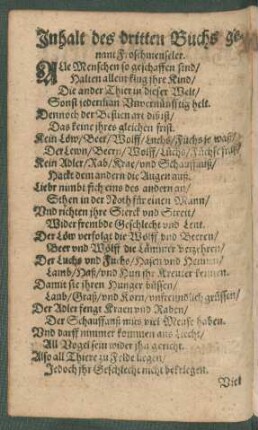 Inhalt des dritten Buchs ge-
nant Froschmeuseler.
Alle Menschen so geschaffen sind/
Halten allein klug jhre Kind/
Die ander Thier in dieser Welt/
Sonst jederman Unvernünfftig helt.
Dennoch der Bestien art diß ist/
Das keine jhres gleichen frist.
Kein Löw/Beer/Wolff/Luchs/Fuchs je
Der Lewn/Beern/Wölff/Lüchs/Füchse
Kein Adler/Rab/Krae/und Schauffauß/
Hackt dem andern die Augen auß.
Liebr nimbt sich eins des andern an/
Stehn in der Noth für einen Mann/
Und richten jhre Sterck und Streit/
Wider frembde Geschlecht und Leut.
Der Löw verfolgt die Wölff und Beeren/
Beer und Wölff die Lämmer verzehren/
Der Luchs und Fuchs/Hasen und Hennen/
Lamb/Haß/und Hun jhr Kreuter kennen.
Damit sie jhren Hunger büssen/
Laub/Graß/und Korn/unfreundlich grüssen/
Der Adler fengt Kraen und Raben/
Der Schauffauß mus viel Meuse haben.
Und darff nimmer kommen ans Liecht/
All Vogel sein wider jhn gericht.
Also all Thiere zu Felde liegen/
Jedoch jhr Geschlecht nicht bekriegen.
Viel